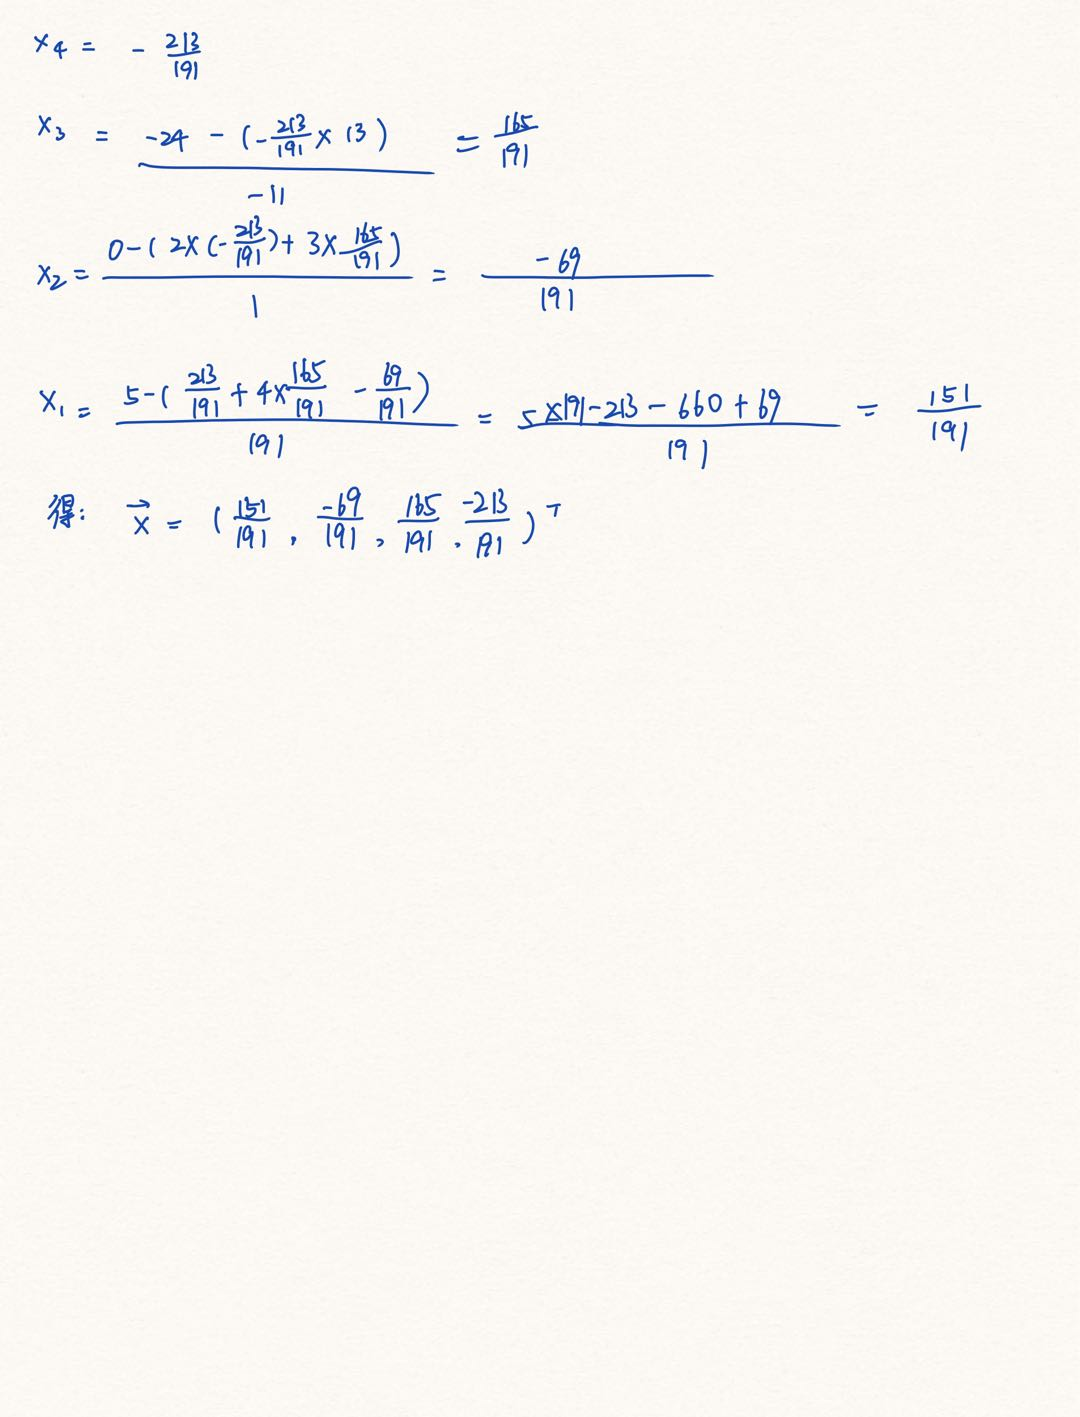 x₄ = - 213/191
x₃ = (-24 - (-213/191 × 13))/(-11) = 165/191
x₂ = (0-(2×(-213/191)+3×165/191))/1 = -69/191
x₁ = (5-(213/191 + 4×165/191 - 69/191))/191 = (5×191-213-660+69)/191 = 151/191
得: x⃗ = (151/191, -69/191, 165/191, -213/191)ᵀ